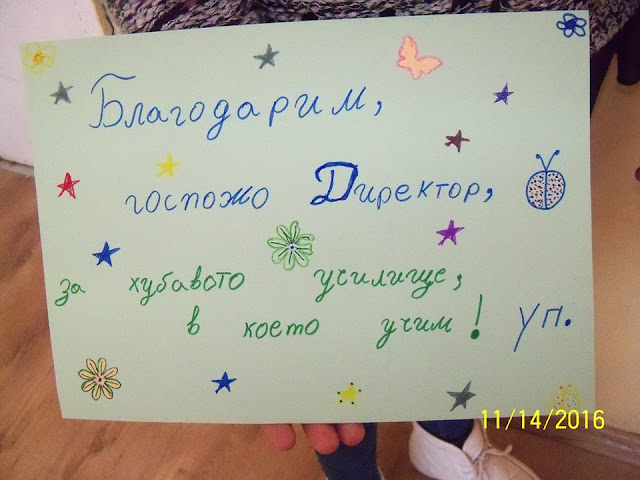 Благодарим,
госпожо Директор,
за хубавото усилище,
в което учим! уп.
11/14/2016